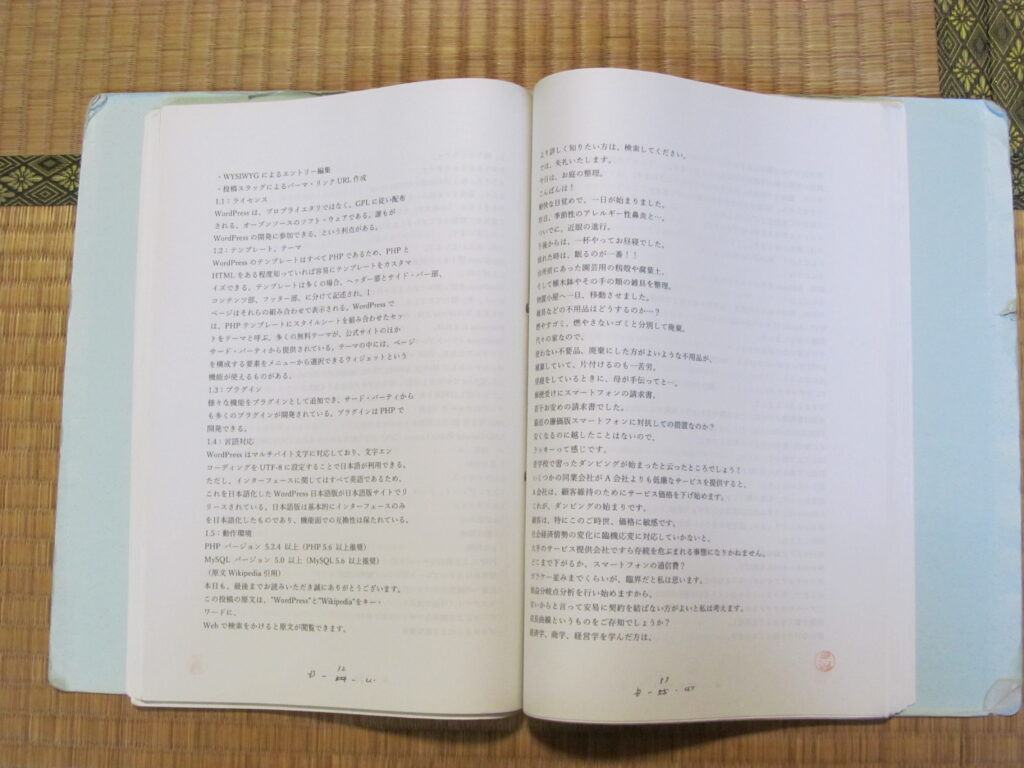 ・WYSIWYG によるエントリー編集
・投稿スラッグによるパーマ・リンク URL 作成
1.1：ライセンス
WordPress は、プロプライエタリではなく、GPL に従い配布
される、オープンソースのソフト・ウェアである。誰もが
WordPress の開発に参加できる、という利点がある。
1.2：テンプレート、テーマ
WordPress のテンプレートはすべて PHP であるため、PHP と
HTML をある程度知っていれば容易にテンプレートをカスタマ
イズできる。テンプレートは多くの場合、ヘッダー部とサイド・バー部、
コンテンツ部、フッター部、に分けて記述され、1
ページはそれらの組み合わせで表示される。WordPress で
は、PHP テンプレートにスタイルシートを組み合わせたセッ
トをテーマと呼ぶ。多くの無料テーマが、公式サイトのほか
サード・パーティから提供されている。テーマの中には、ページ
を構成する要素をメニューから選択できるウィジェットという
機能が使えるものがある。
1.3：プラグイン
様々な機能をプラグインとして追加でき、サード・パーティから
も多くのプラグインが開発されている。プラグインは PHP で
開発できる。
1.4：言語対応
WordPress はマルチバイト文字に対応しており、文字エン
コーディングを UTF-8 に設定することで日本語が利用できる。
ただし、インターフェースに関してはすべて英語であるため、
これを日本語化した WordPress 日本語版が日本語版サイトでリ
リースされている。日本語版は基本的にインターフェースのみ
を日本語化したものであり、機能面での互換性は保たれている。
1.5：動作環境
PHP バージョン 5.2.4 以上（PHP 5.6 以上推奨）
MySQL バージョン 5.0 以上（MySQL 5.6 以上推奨）
（原文 Wikipedia 引用）
本日も、最後までお読みいただき誠にありがとうございます。
この投稿の原文は、"WordPress"と"Wikipedia"をキー・
ワードに、
Web で検索をかけると原文が閲覧できます。
より詳しく知りたい方は、検索してください。
では、失礼いたします。
今日は、お庭の整理。
こんばんは！
快な目覚めで、一日が始まりました。
昨日、季節性のアレルギー性鼻炎と…。
ついでに、近眼の進行。
午後からは、一杯やってお昼寝でした。
疲れた時は、眠るのが一番！！
台所前にあった園芸用の籾殻や腐葉土、
そして植木鉢やその手の類の雑具を整理。
物置小屋へ一旦、移動させました。
雑具などの不用品はどうするのか…？
燃やすゴミ、燃やさないゴミと分別して廃棄。
代々の家なので、
使わない不要品、廃棄にした方がよいような不用品が、
していて、片付けるのも一苦労。
をしているときに、母が手伝ってと…。
郵便受けにスマートフォンの請求書。
お安めの請求書でした。
最近の廉価版スマートフォンに対抗しての措置なのか？
安くなるのに越したことはないので、
ラッキーって感じです。
学校で習ったダンピングが始まったと云ったところでしょう！
いくつかの同業会社が A 会社よりも低廉なサービスを提供すると、
A 会社は、顧客維持のためにサービス価格を下げ始めます。
これが、ダンピングの始まりです。
顧客は、特にこのご時世、価格に敏感です。
社会経済情勢の変化に臨機応変に対応していかないと、
大手のサービス提供会社ですら存続を危ぶまれる事態になりかねません。
どこまで下がるか、スマートフォンの通信費？
ガラケー並みまでくらいが、臨界だと私は思います。
損益分岐点分析を行い始めますから、
安いからと言って安易に契約を結ばない方がよいと私は考えます。
成長曲線というものをご存知でしょうか？
経済学、商学、経営学を学んだ方は、